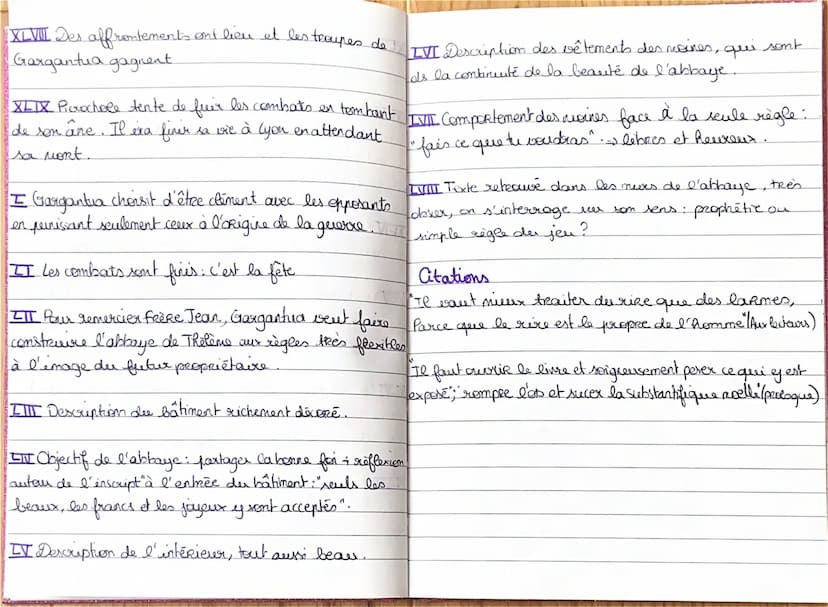 XLVIII Des affrontements ont lieu et les troupes de
Gargantua gagnent
XLIX Picrochole tente de fuir les combats en tombant
de son âne. Il ira finir sa vie à Lyon en attendant
sa mort.
L Gargantua choisit d'être clément avec les opposants
en punissant seulement ceux à l'origine de la guerre.
LI Les combats sont finis : c'est la fête
LII Pour remercier Frère Jean, Gargantua veut faire
construire l'abbaye de Thélème aux règles très flexibles
à l'image du futur propriétaire.
LIII Description du bâtiment richement décoré.
LIV Objectif de l'abbaye : partager la bonne foi + réflexion
autour de l'inscript° à l'entrée du bâtiment : "seuls les
beaux, les francs et les joyeux y sont acceptés".
LV Description de l'intérieur, tout aussi beau.
LVI Description des vêtements des moines, qui sont
ds la continuité de la beauté de l'abbaye.
LVII Comportement des moines face à la seule règle :
"fais ce que tu voudras". → libres et heureux.
LVIII Texte retrouvé dans les murs de l'abbaye, très
obscur, on s'interroge sur son sens : prophétie ou
simple règle du jeu ?
Citations
"Il vaut mieux traiter du rire que des larmes,
Parce que le rire est le propre de l'homme" (Aux lecteurs)
"Il faut ouvrir le livre et soigneusement peser ce qui y est
exposé" ; "rompre l'os et sucer la substantifique moelle" (prologue)